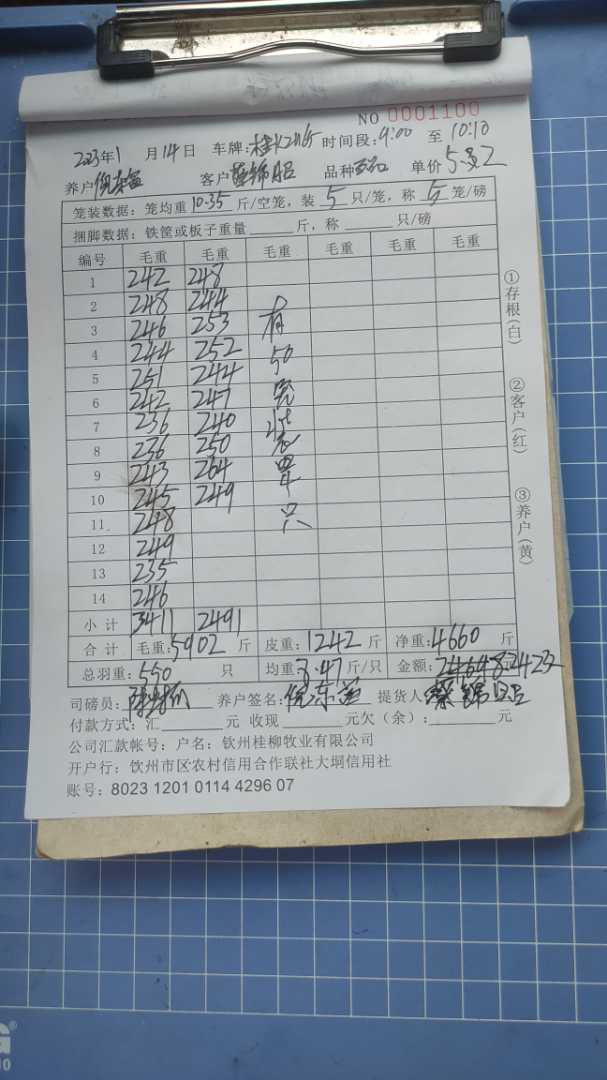 NO 0001100
2023年1月14日 车牌: 时间段:9:00 至 10:10
养户 客户 品种 单价5.
笼装数据：笼均重 10.35 斤/空笼，装 5 只/笼，称 5 笼/磅
捆脚数据：铁筐或板子重量______斤，称______只/磅
编号 毛重 毛重 毛重 毛重 毛重 毛重
1 242 248
2 248 244
3 246 253 有
4 244 252 50
5 251 244 笼
6 242 247
7 236 240 装
8 236 250
9 243 264 四
10 245 249 只
11 248
12 249
13 235
14 246
小计 3411 2491
合计 毛重:5902斤 皮重:1242斤 净重:4660斤
总羽重:550只 均重3.47斤/只 金额:
司磅员: 养户签名: 倪东 提货人
付款方式：汇______元 收现______元欠（余）:______元
公司汇款帐号：户名：钦州桂柳牧业有限公司
开户行：钦州市区农村信用合作联社大垌信用社
账号：8023 1201 0114 4296 07
①存根(白)
②客户(红)
③养户(黄)